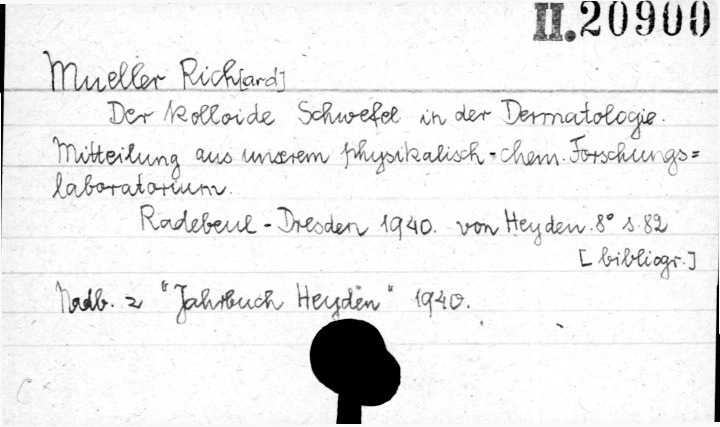 II.20900
Mueller Rich[ard]
Der kolloide Schwefel in der Dermatologie.
Mitteilung aus unserem physikalisch-chem. Forschungs=
laboratorium.
Radebeul-Dresden 1940. von Heyden. 8° s. 82
[bibliogr.]
Nadb. z "Jahrbuch Heyden" 1940.
C